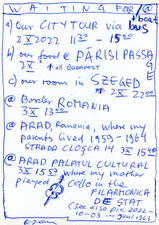 WAITING FOR @
a) our CITY TOUR via boat + bus
2 X 2022 11 30 - 15 00
b) our food @ PÁRISI PASSAGE
2 X + all BUDAPEST
c) our room in SZEGED
2 X 22 00
@ Border ROMANIA
3 X 13 00
@ ARAD, Romania, where my
parents lived 1959-1964
STRADA CLOSCA 14 3 X 15 40
@ ARAD PALATUL CULTURAL
3 X 15 53 where my mother
played Cello in the
FILARMONICA
DE STAT
(see also PL - 2022 -
10-03